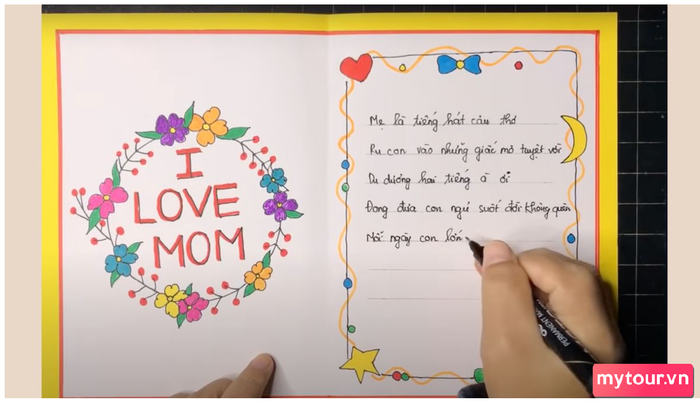 I
LOVE
MOM
Mẹ là tiếng hát câu thơ
Ru con vào những giấc mơ tuyệt vời
Du dương hai tiếng à ơi
Đong đưa con ngủ suốt đời không quên
Mỗi ngày con lớn
PERMANENT
mytour.vn